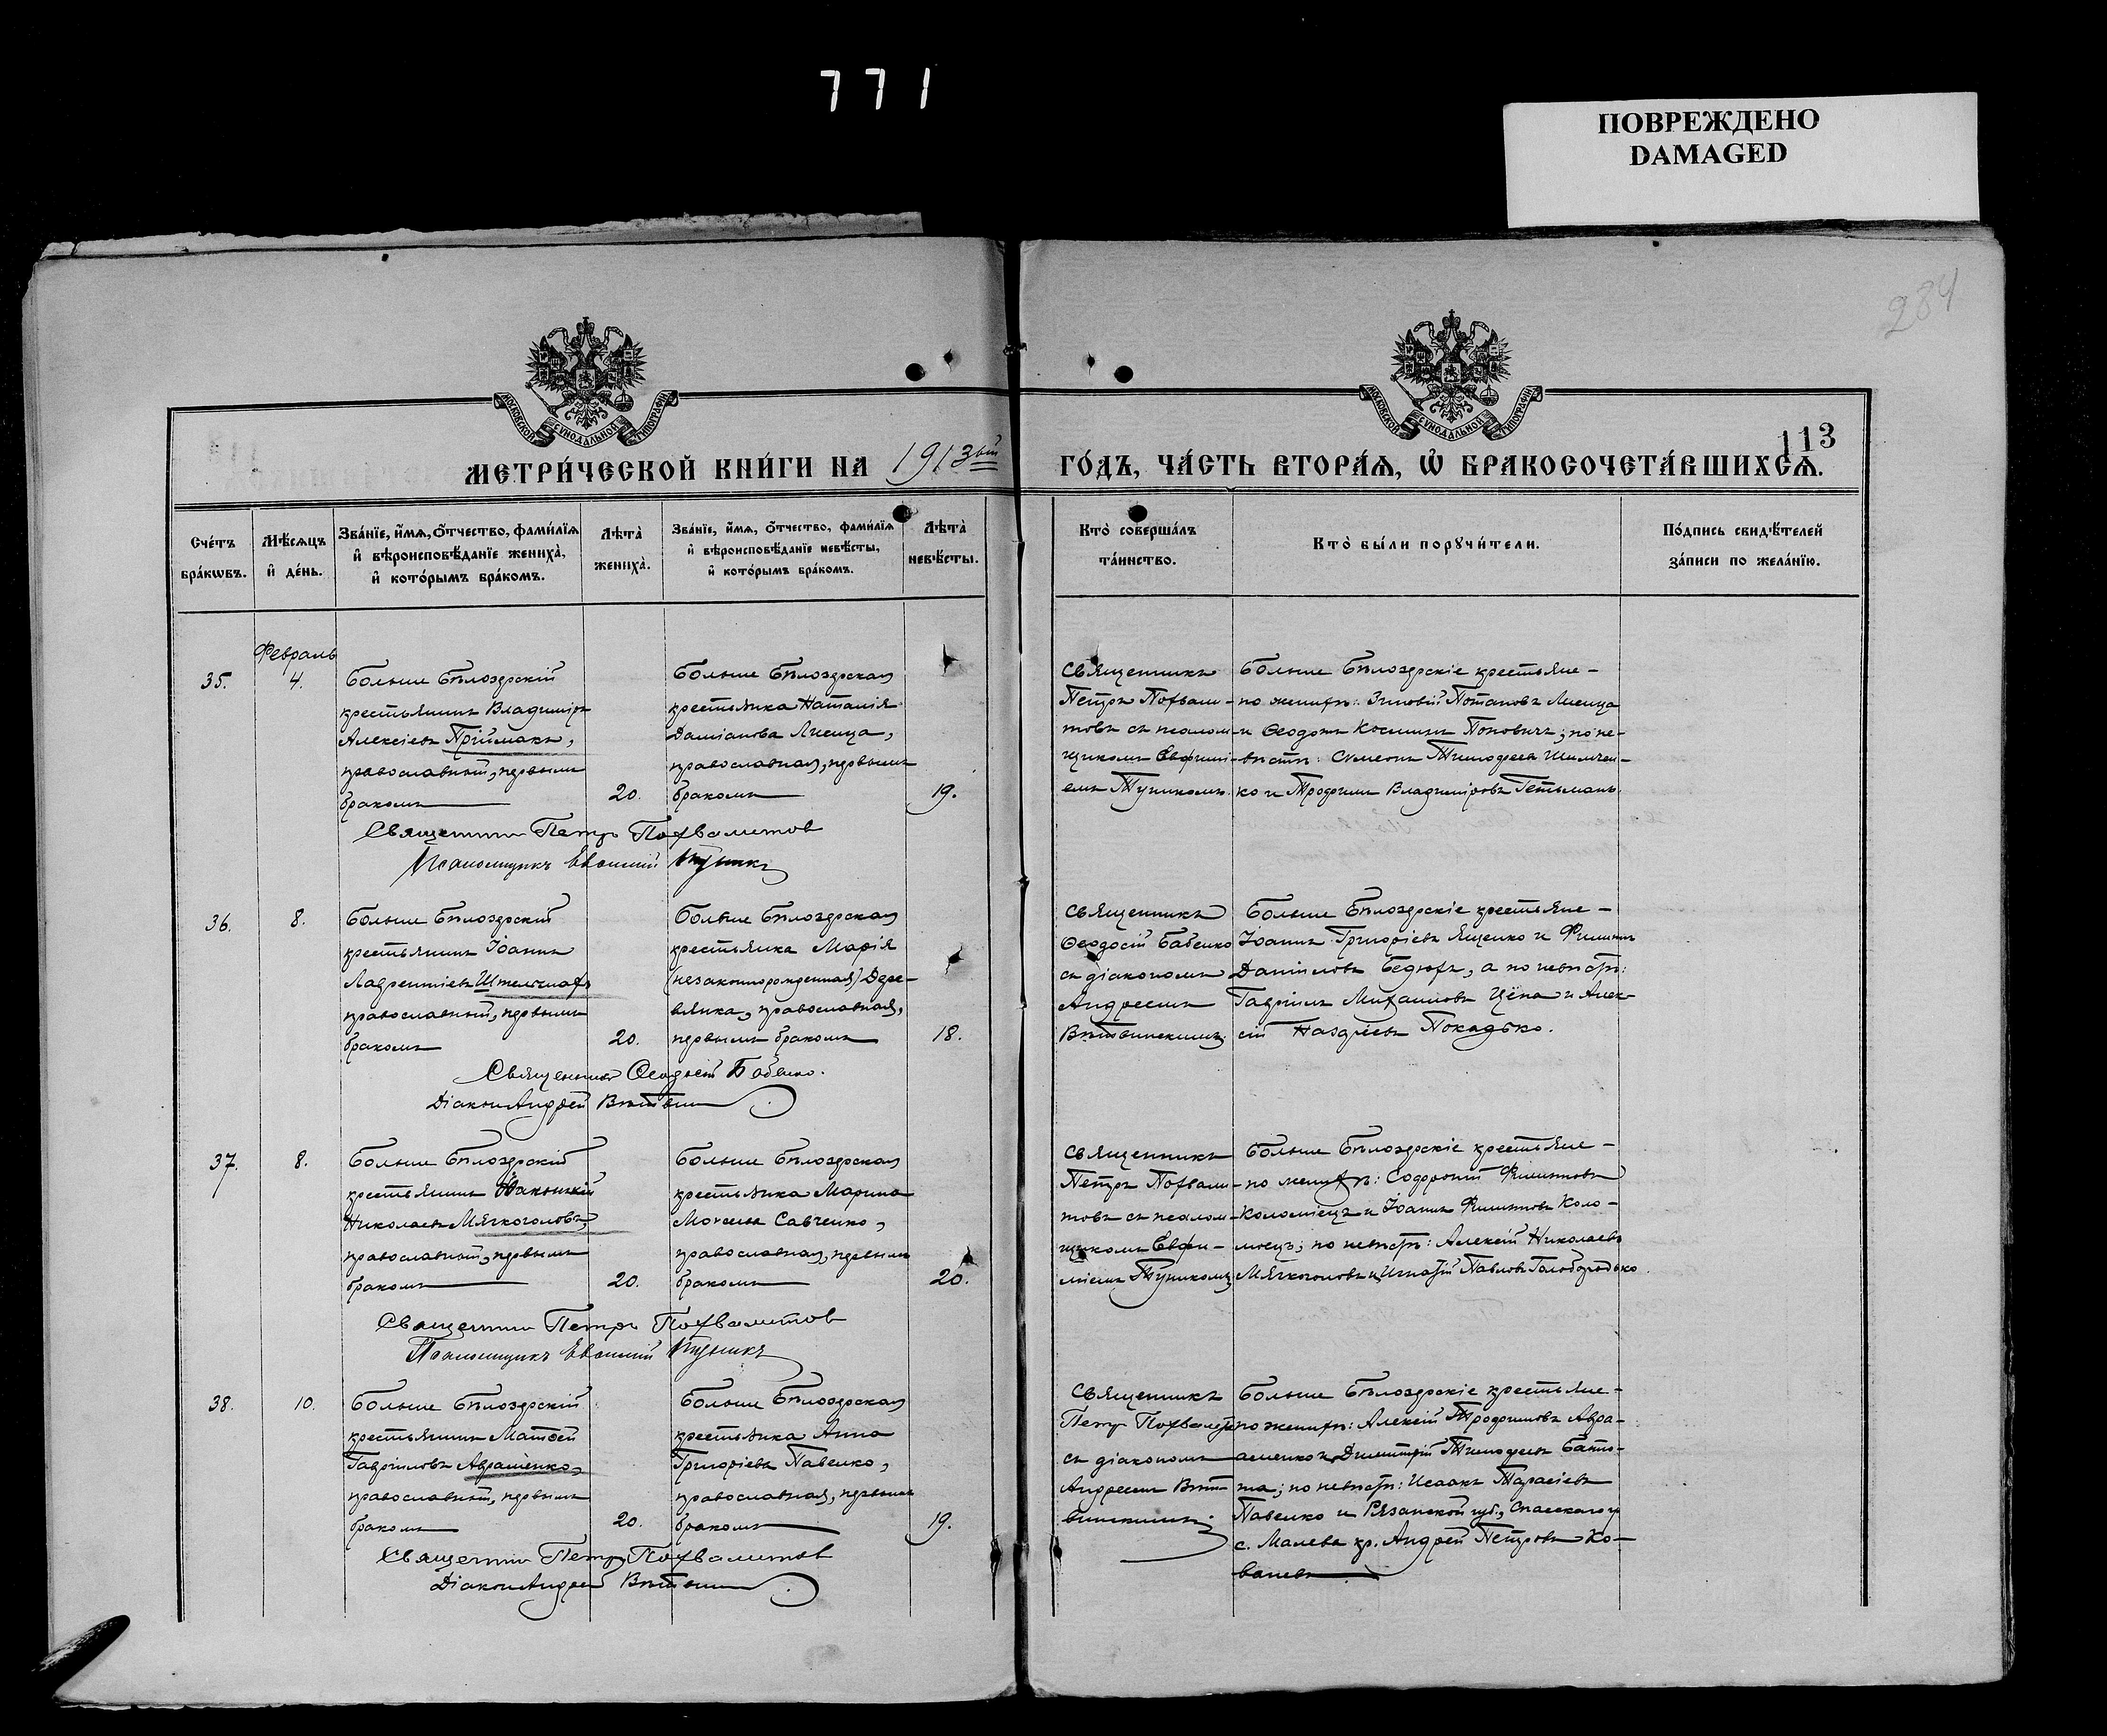 771
ПОВРЕЖДЕНО
DAMAGED
284
МОСКОВСКОЙ СѴНОДАЛЬНОЙ ТИПОГРАФІИ
МОСКОВСКОЙ СѴНОДАЛЬНОЙ ТИПОГРАФІИ
113
МЕТРИ́ЧЕСКОЙ КНИ́ГИ НА 1913ый ГО́ДЪ, ЧА́СТЬ ВТОРА́Я, Ѡ БРАКОСОЧЕТА́ВШИХСЯ.
Сче́тъ
бра́кѡвъ.
Мѣ́сяцъ
и҆ де́нь.
Зва́нїе, и҆́мя, ѻ҆́тчество, фами́лїя
и҆ вѣроисповѣ́данїе жениха̀,
и҆ кото́рымъ бра́комъ.
Лѣта̀
жениха̀.
Зва́нїе, и҆́мя, ѻ҆́тчество, фами́лїя
и҆ вѣроисповѣ́данїе невѣ́сты,
и҆ кото́рымъ бра́комъ.
Лѣта̀
невѣ́сты.
Кто̀ соверша́лъ
та́инство.
Кто̀ бы́ли порꙋчи́тели.
По́дпись свидѣ́телей
за́писи по жела́нїю.
35.
Февраль
4.
Больше Бѣлозерскій
крестьянинъ Владиміръ
Алексіевъ Пріймакъ,
православный, первымъ
бракомъ
20.
Больше Бѣлозерская
крестьянка Наталія
Даміанова Лисица,
православная, первымъ
бракомъ
19.
Священникъ
Петръ Похвали-
товъ съ псалом-
щикомъ Евфимі-
емъ Тупикомъ.
Больше Бѣлозерскіе крестьяне –
по женихѣ: Зиновій Потаповъ Лисица
и Ѳеодотъ Косминъ Поповичъ; по не-
вѣстѣ: Симеонъ Тимофеевъ
ко и Трофимъ Владиміровъ Гетьманъ.
Священникъ Петръ Похвалитовъ
Псаломщикъ Евѳимій Тупикъ
36.
8.
Больше Бѣлозерскій
крестьянинъ Іоаннъ
Лаврентіевъ
православный, первымъ
бракомъ
20.
Больше Бѣлозерская
крестьянка Марія
(незаконнорожденная) Дере-
вянка, православная,
первымъ бракомъ
18.
Священникъ
Ѳеодосій Бабенко
съ діакономъ
Андреемъ
Вѣтвинскимъ.
Больше Бѣлозерскіе крестьяне –
Іоаннъ Григоріевъ Яценко и Филиппъ
Даніиловъ Бедюхъ, а по невѣстѣ:
Гавріилъ Михаиловъ Цѣпа и Алек-
сій Назаріевъ Покадько.
Священникъ Ѳеодосій Бабенко.
Діаконъ Андрей
37.
8.
Больше Бѣлозерскій
крестьянинъ
Николаевъ Мягкоголовъ,
православный, первымъ
бракомъ
20.
Больше Бѣлозерская
крестьянка Марина
Моисеева Савченко,
православная, первымъ
бракомъ
20.
Священникъ
Петръ Похвали-
товъ съ псалом-
щикомъ Евфи-
міемъ Тупикомъ
Больше Бѣлозерскіе крестьяне –
по женихѣ: Софроній Филипповъ
Коломіецъ и Іоаннъ Филипповъ Коло-
міецъ; по невѣстѣ: Алексій Николаевъ
Мягкоголовъ и Игнатій Павловъ Голобородько.
Священникъ Петръ Похвалитовъ
Псаломщикъ Евѳимій Тупикъ
38.
10.
Больше Бѣлозерскій
крестьянинъ Матѳей
Гавріиловъ Авраменко,
православный, первымъ
бракомъ
20.
Больше Бѣлозерская
крестьянка Анна
Григоріева Павенко,
православная, первымъ
бракомъ
19.
Священникъ
Петръ Похвалитовъ
съ діакономъ
Андреемъ Вѣт-
винскимъ.
Больше Бѣлозерскіе крестьяне –
по женихѣ: Алексій Трофимовъ Авра-
аменко и Димитрій Тимофеевъ
по невѣстѣ: Исаакъ Тарасіевъ
Павенко и Рязанской губ., Спасскаго у.
с. Малева кр. Андрей Петровъ Ко-
валевъ
Священникъ Петръ Похвалитовъ
Діаконъ Андрей